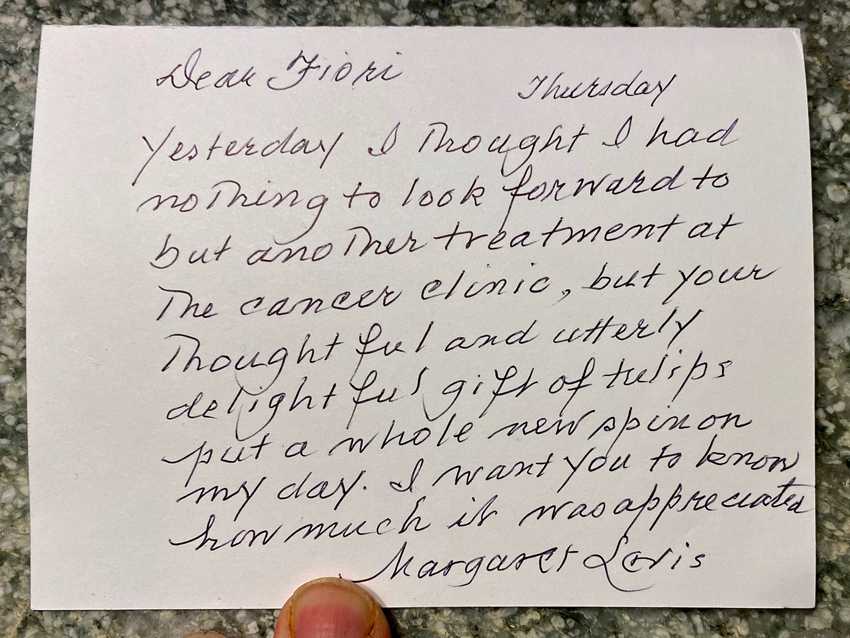 Dear Fiori
Thursday
Yesterday I thought I had
nothing to look forward to
but another treatment at
the cancer clinic, but your
thoughtful and utterly
delightful gift of tulips
put a whole new spin on
my day. I want you to know
how much it was appreciated
Margaret